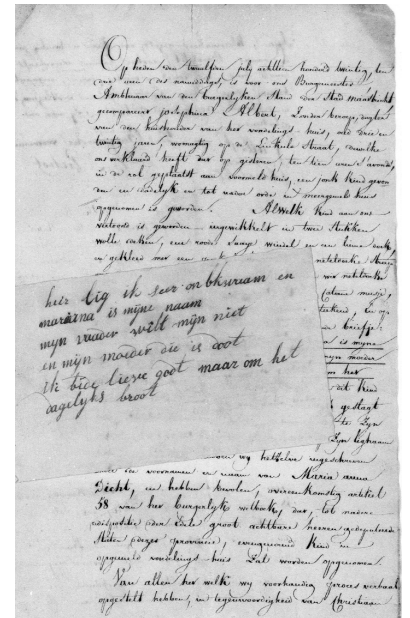 Op heden den twaalfden july achttien honderd twintig, ten
drie uren des nanoddags, is voor ons Burgemeester
Ambtenaar van den burgerlyken Stand der Stad Maastricht
gecompareert Josephina Albert, Zonder beroep, dogter
van den huismeester van het vondelings huis, oud drie en
twintig jaren, woonagtig op de Linkule Straat, dewelke
ons verklaard heeft dat op gisteren, ten tien uren S'avonds,
in de rol geplaatst aan voormeld huis, een jonk kind gevon
den en dadelyk en tot nader orde in meergemeld huis
opgenomen is geworden. Alwelk kind aan ons
vertoond is geworden ingewikkelt in twee stukken
wolle doeken, een roode baaje windel en een linne doek,
en gekleed met een
hier lig ik seer onbkwaam en
marianna is mijne naam
mijn vaader wilt mijn niet
en mijn moeder die is doot
ik bidde lieve godt maar om het
dagelyks broot
dit kind
gestagt
te Zyn
Zyn lighaam
wy hetzelve ingeschreven
onder de voornamen en naam van Maria anna
Dicht, en hebben bevolen, overeenkomstig artikel
58 van het burgerlyk wetboek, dat, tot nadere
dispositie der Edele groot achtbare heeren gedeputeerde
Staten dezer provincie, evengenoemd kind in
opgemeld vondelings huis Zal worden opgenomen.
Van allen het welk wy voorhandig proces verbaal
opgestelt hebben, in tegenwoordigheid van Christiaan